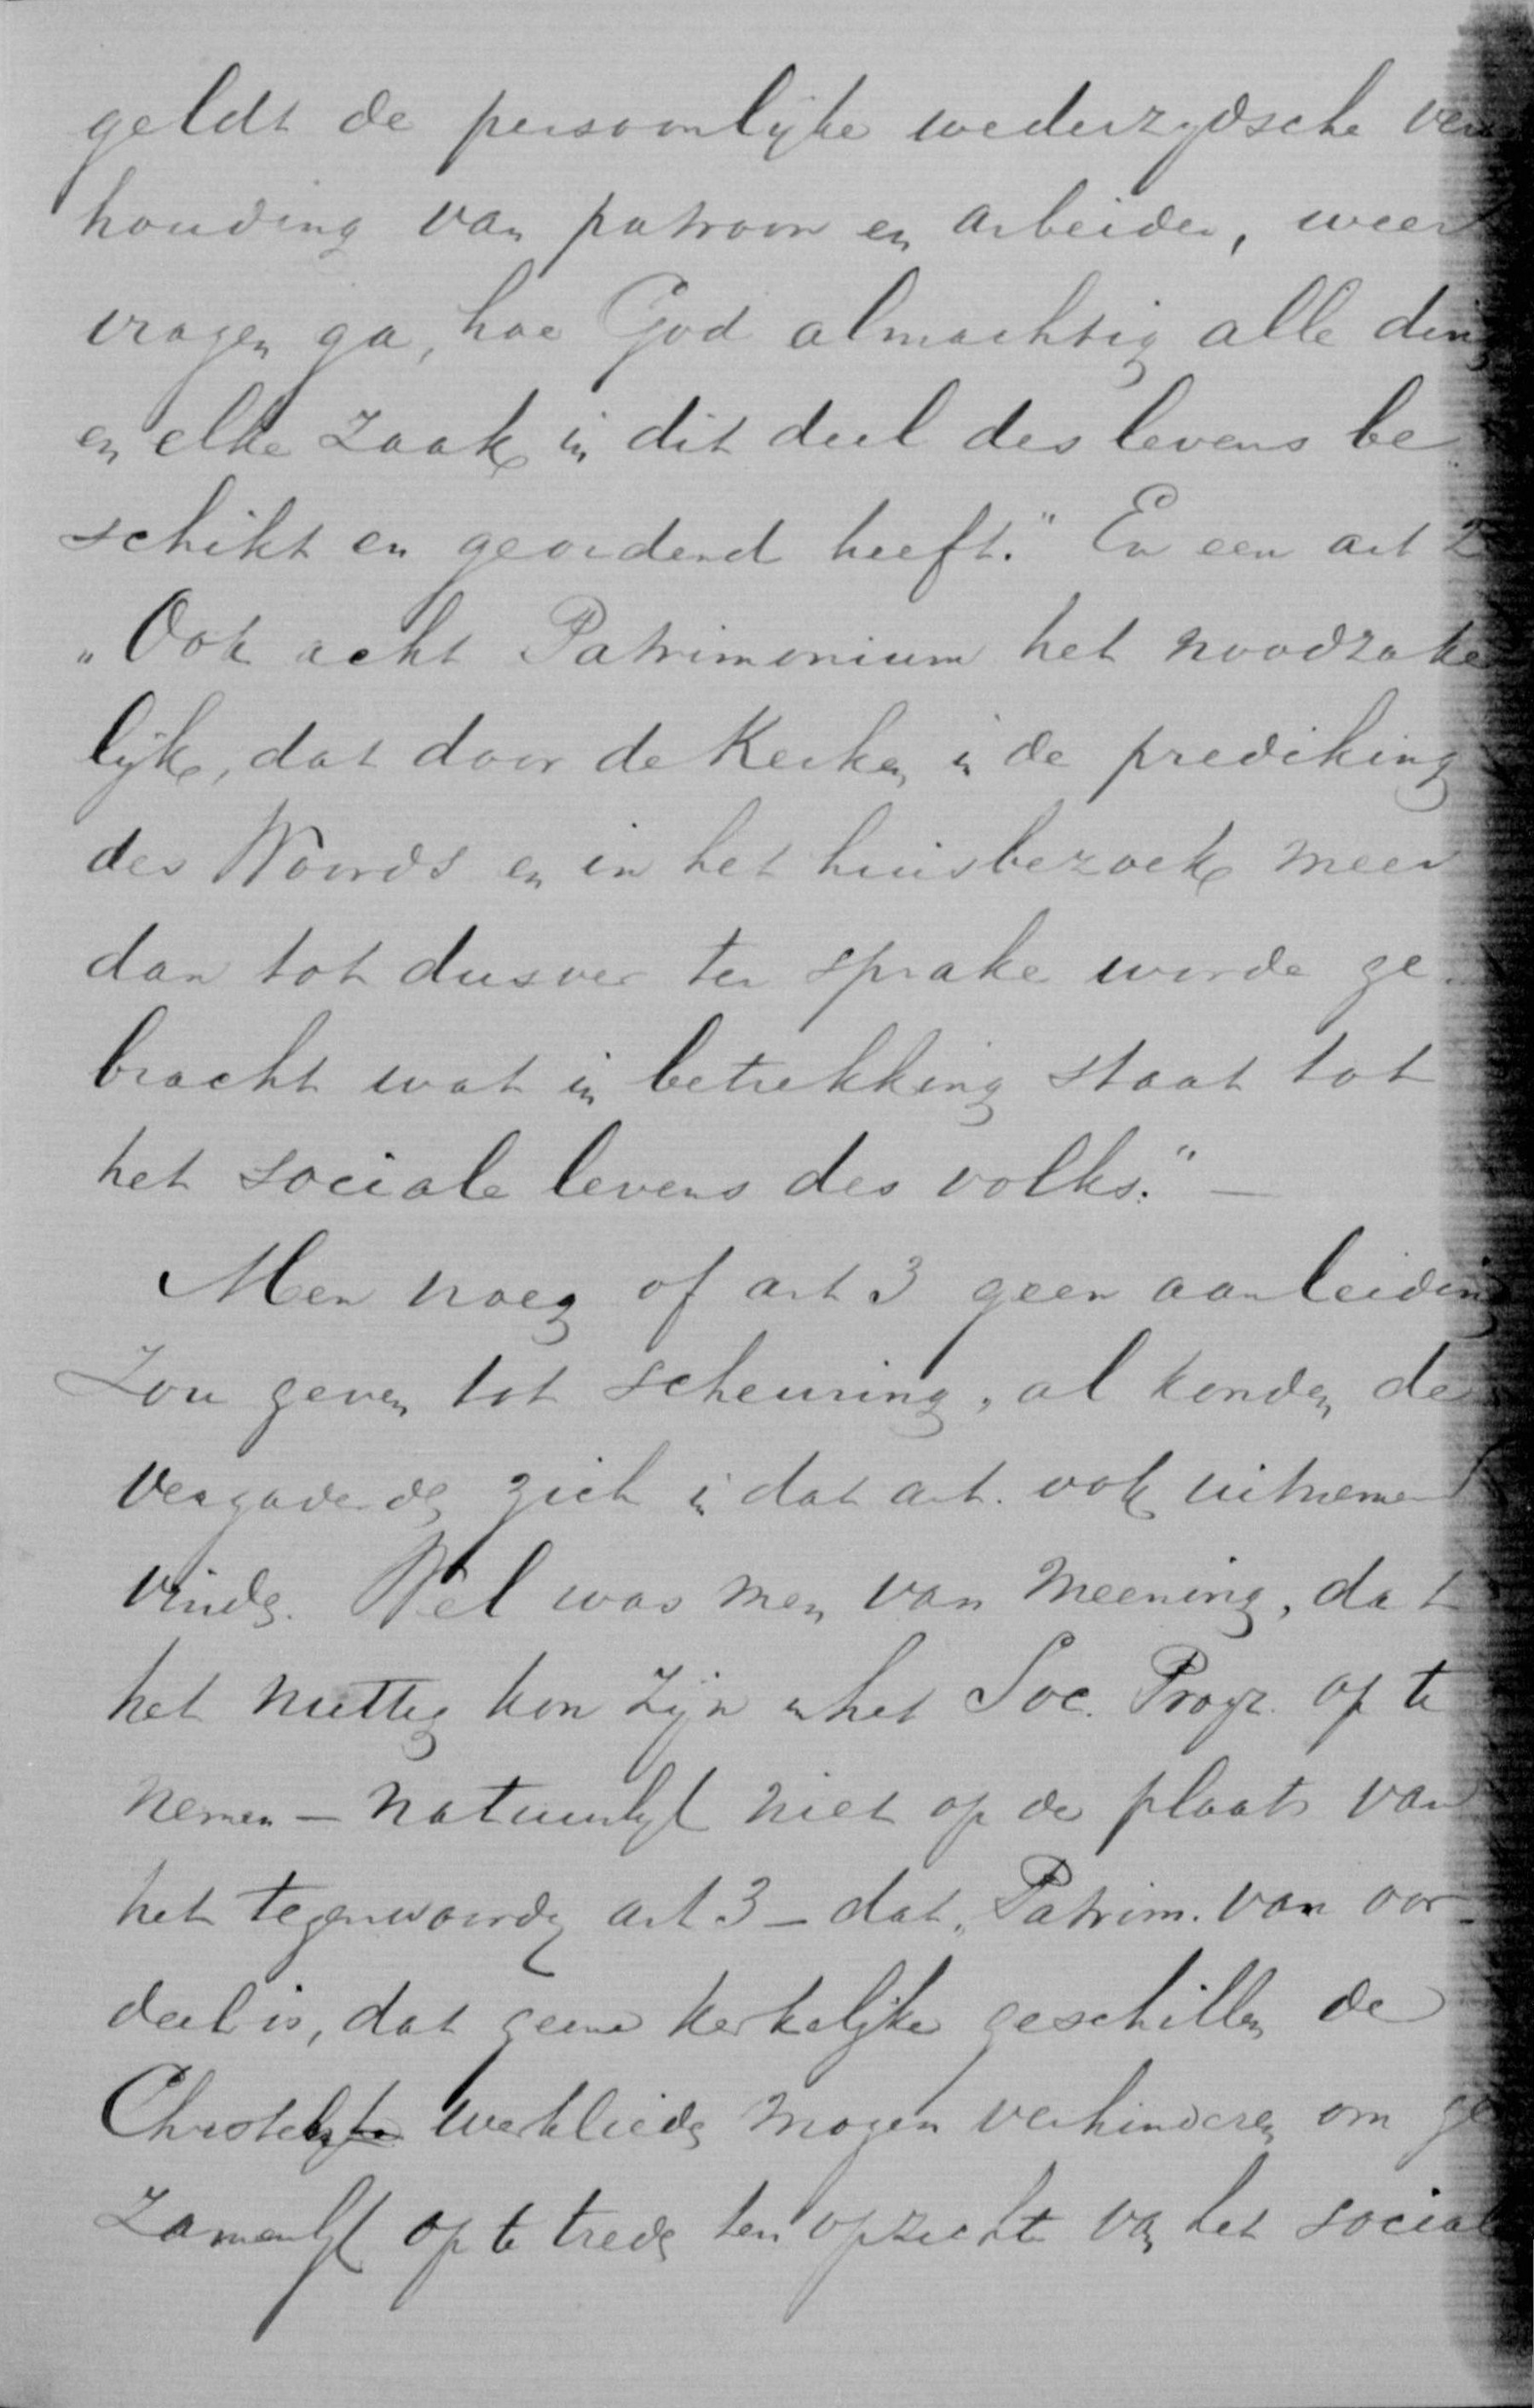 geldt de persoonlijke wederzydsche ver
houding van patroon en arbeider, weer
vragen ga, hoe God almachtig alle ding
en elke zaak in dit deel des levens be
schikt en geordend heeft." En een art 2
„Ook acht Patrimonium het noodzake
lijk, dat door de Kerken in de prediking
des Woords en in het huisbezoek meer
dan tot dusver ter sprake worde ge-
bracht wat in betrekking staat tot
het sociale levens des volks." —
Men vroeg of art 3 geen aanleiding
zou geven tot scheuring, al konden de
vergaderden zich in dat art. ook uitnemend
vinden. Wel was men van meening, dat
het nuttig kon zijn in het Soc. Progr. op te
nemen — natuurlijk niet op de plaats van
het tegenwoordig art 3 — dat „Patrim. van oor-
deel is, dat geene kerkelijke geschillen de
Christelijke werklieden mogen verhinderen om ge
zamenlijk op te treden ten opzichte van het sociale